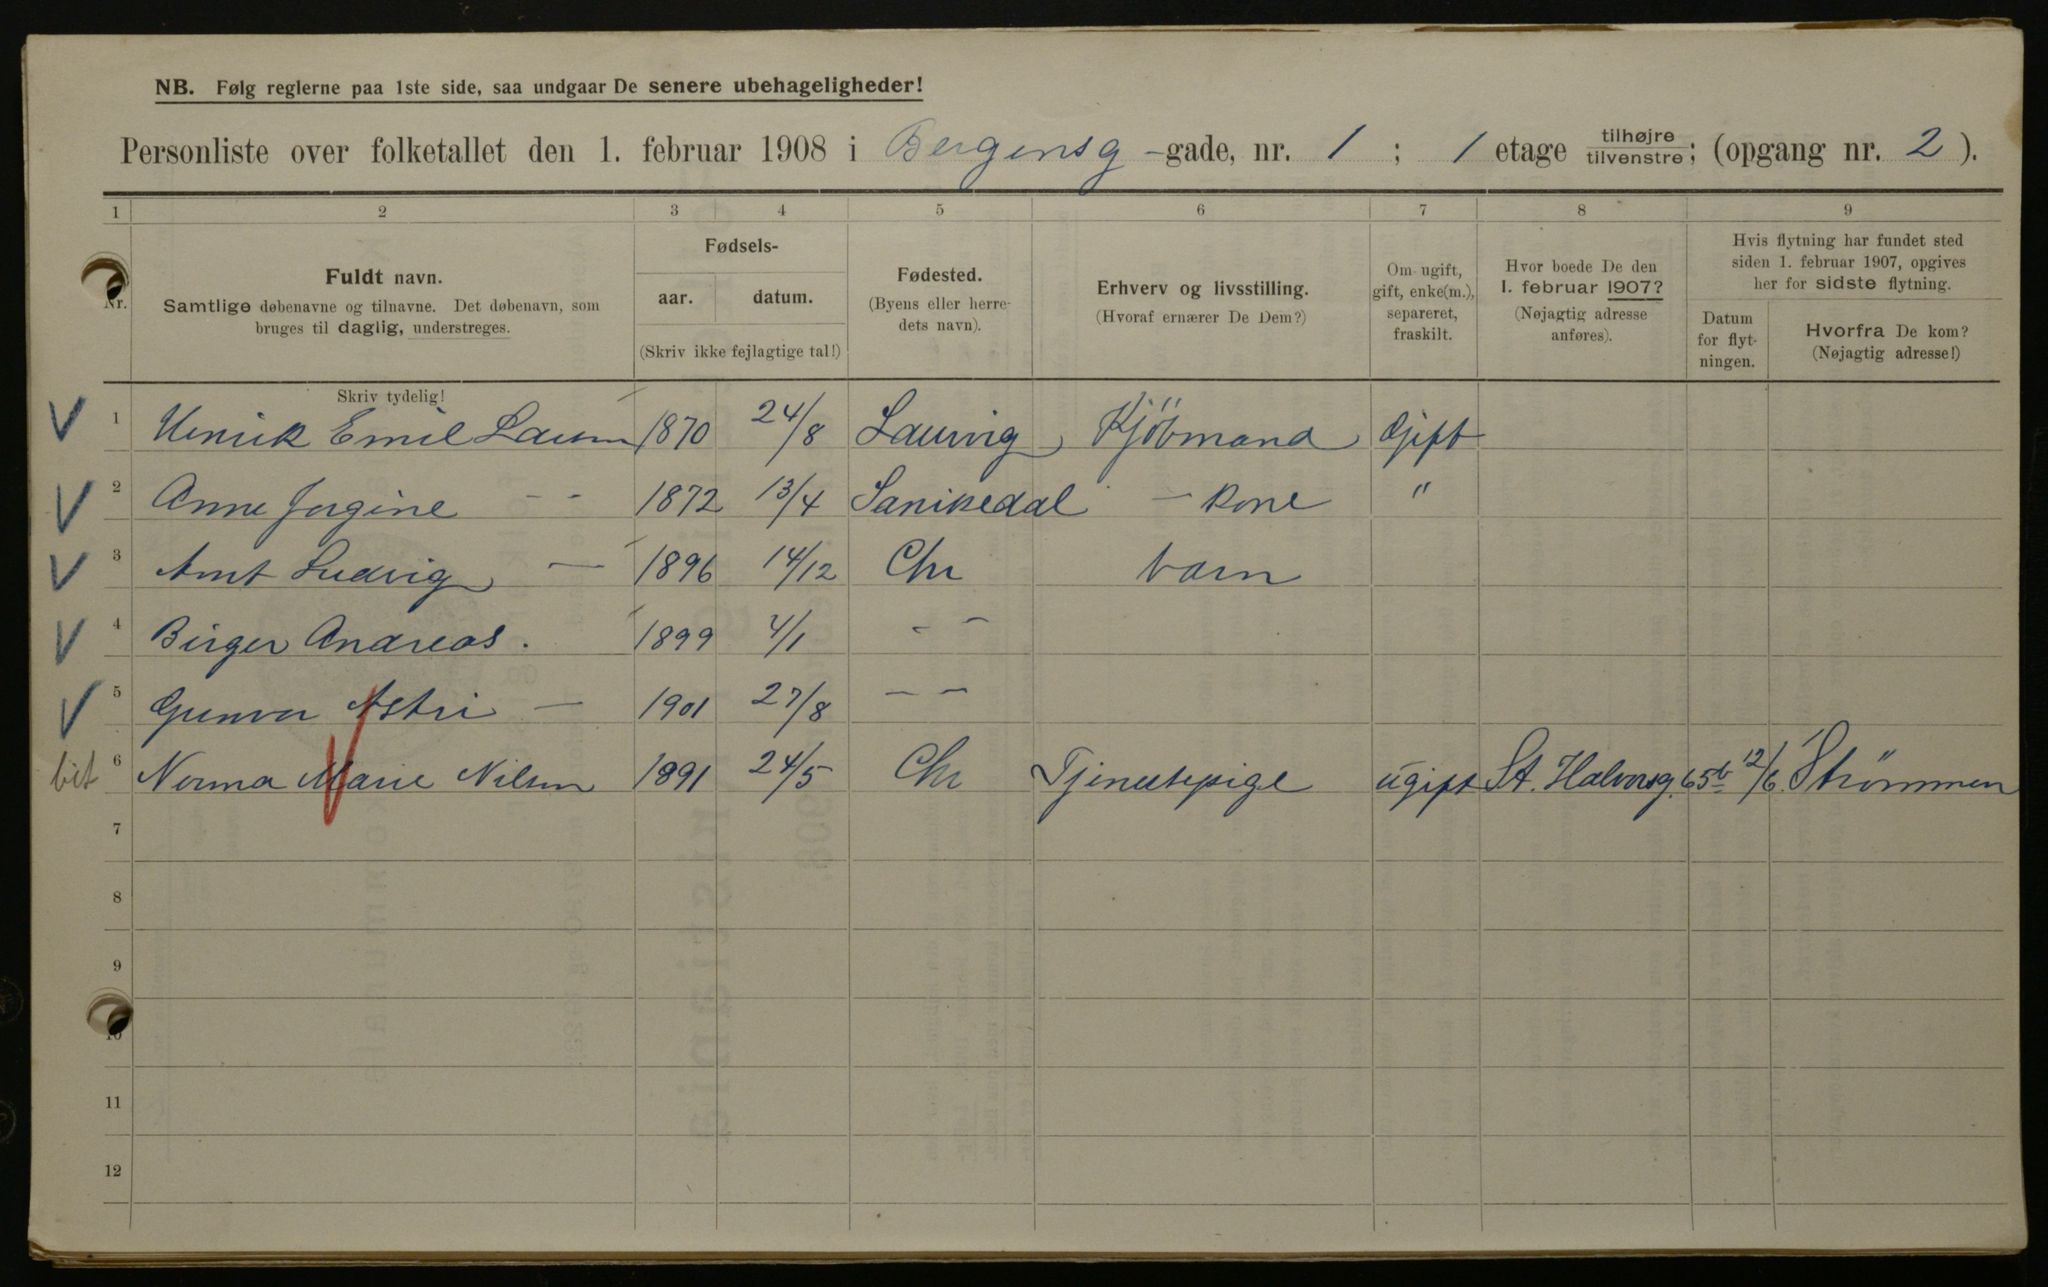 NB. Følg reglerne paa 1ste side, saa undgaar De senere ubehageligheder!
Personliste over folketallet den 1. februar 1908 i Bergensg -gade, nr. 1 ; 1 etage tilhøjre/tilvenstre; (opgang nr. 2 ).
1 2 3 4 5 6 7 8 9
Nr.
Fuldt navn.
Samtlige døbenavne og tilnavne. Det døbenavn, som
bruges til daglig, understreges.
Skriv tydelig!
Fødsels-
aar. datum.
(Skriv ikke fejlagtige tal!)
Fødested.
(Byens eller herre-
dets navn).
Erhverv og livsstilling.
(Hvoraf ernærer De Dem?)
Om ugift,
gift, enke(m.),
separeret,
fraskilt.
Hvor boede De den
1. februar 1907?
(Nøjagtig adresse
anføres).
Hvis flytning har fundet sted
siden 1. februar 1907, opgives
her for sidste flytning.
Datum
for flyt-
ningen.
Hvorfra De kom?
(Nøjagtig adresse!)
1 Henrik Emil 1870 24/8 Laurvig Kjöbmand Gift
2 Anne Jorgine - - 1872 13/4 Sanikedal - kone "
3 Arnt Ludvig - 1896 14/12 Chr barn
4 Birger Andreas. 1899 4/1 - -
5 Gunvor Astri - 1901 27/8 - -
bit 6 Norma Marie Nilsen 1891 24/5 Chr Tjenestepige ugift St. Halvorsg. 65b 12/6 Strömmen
7
8
9
10
11
12